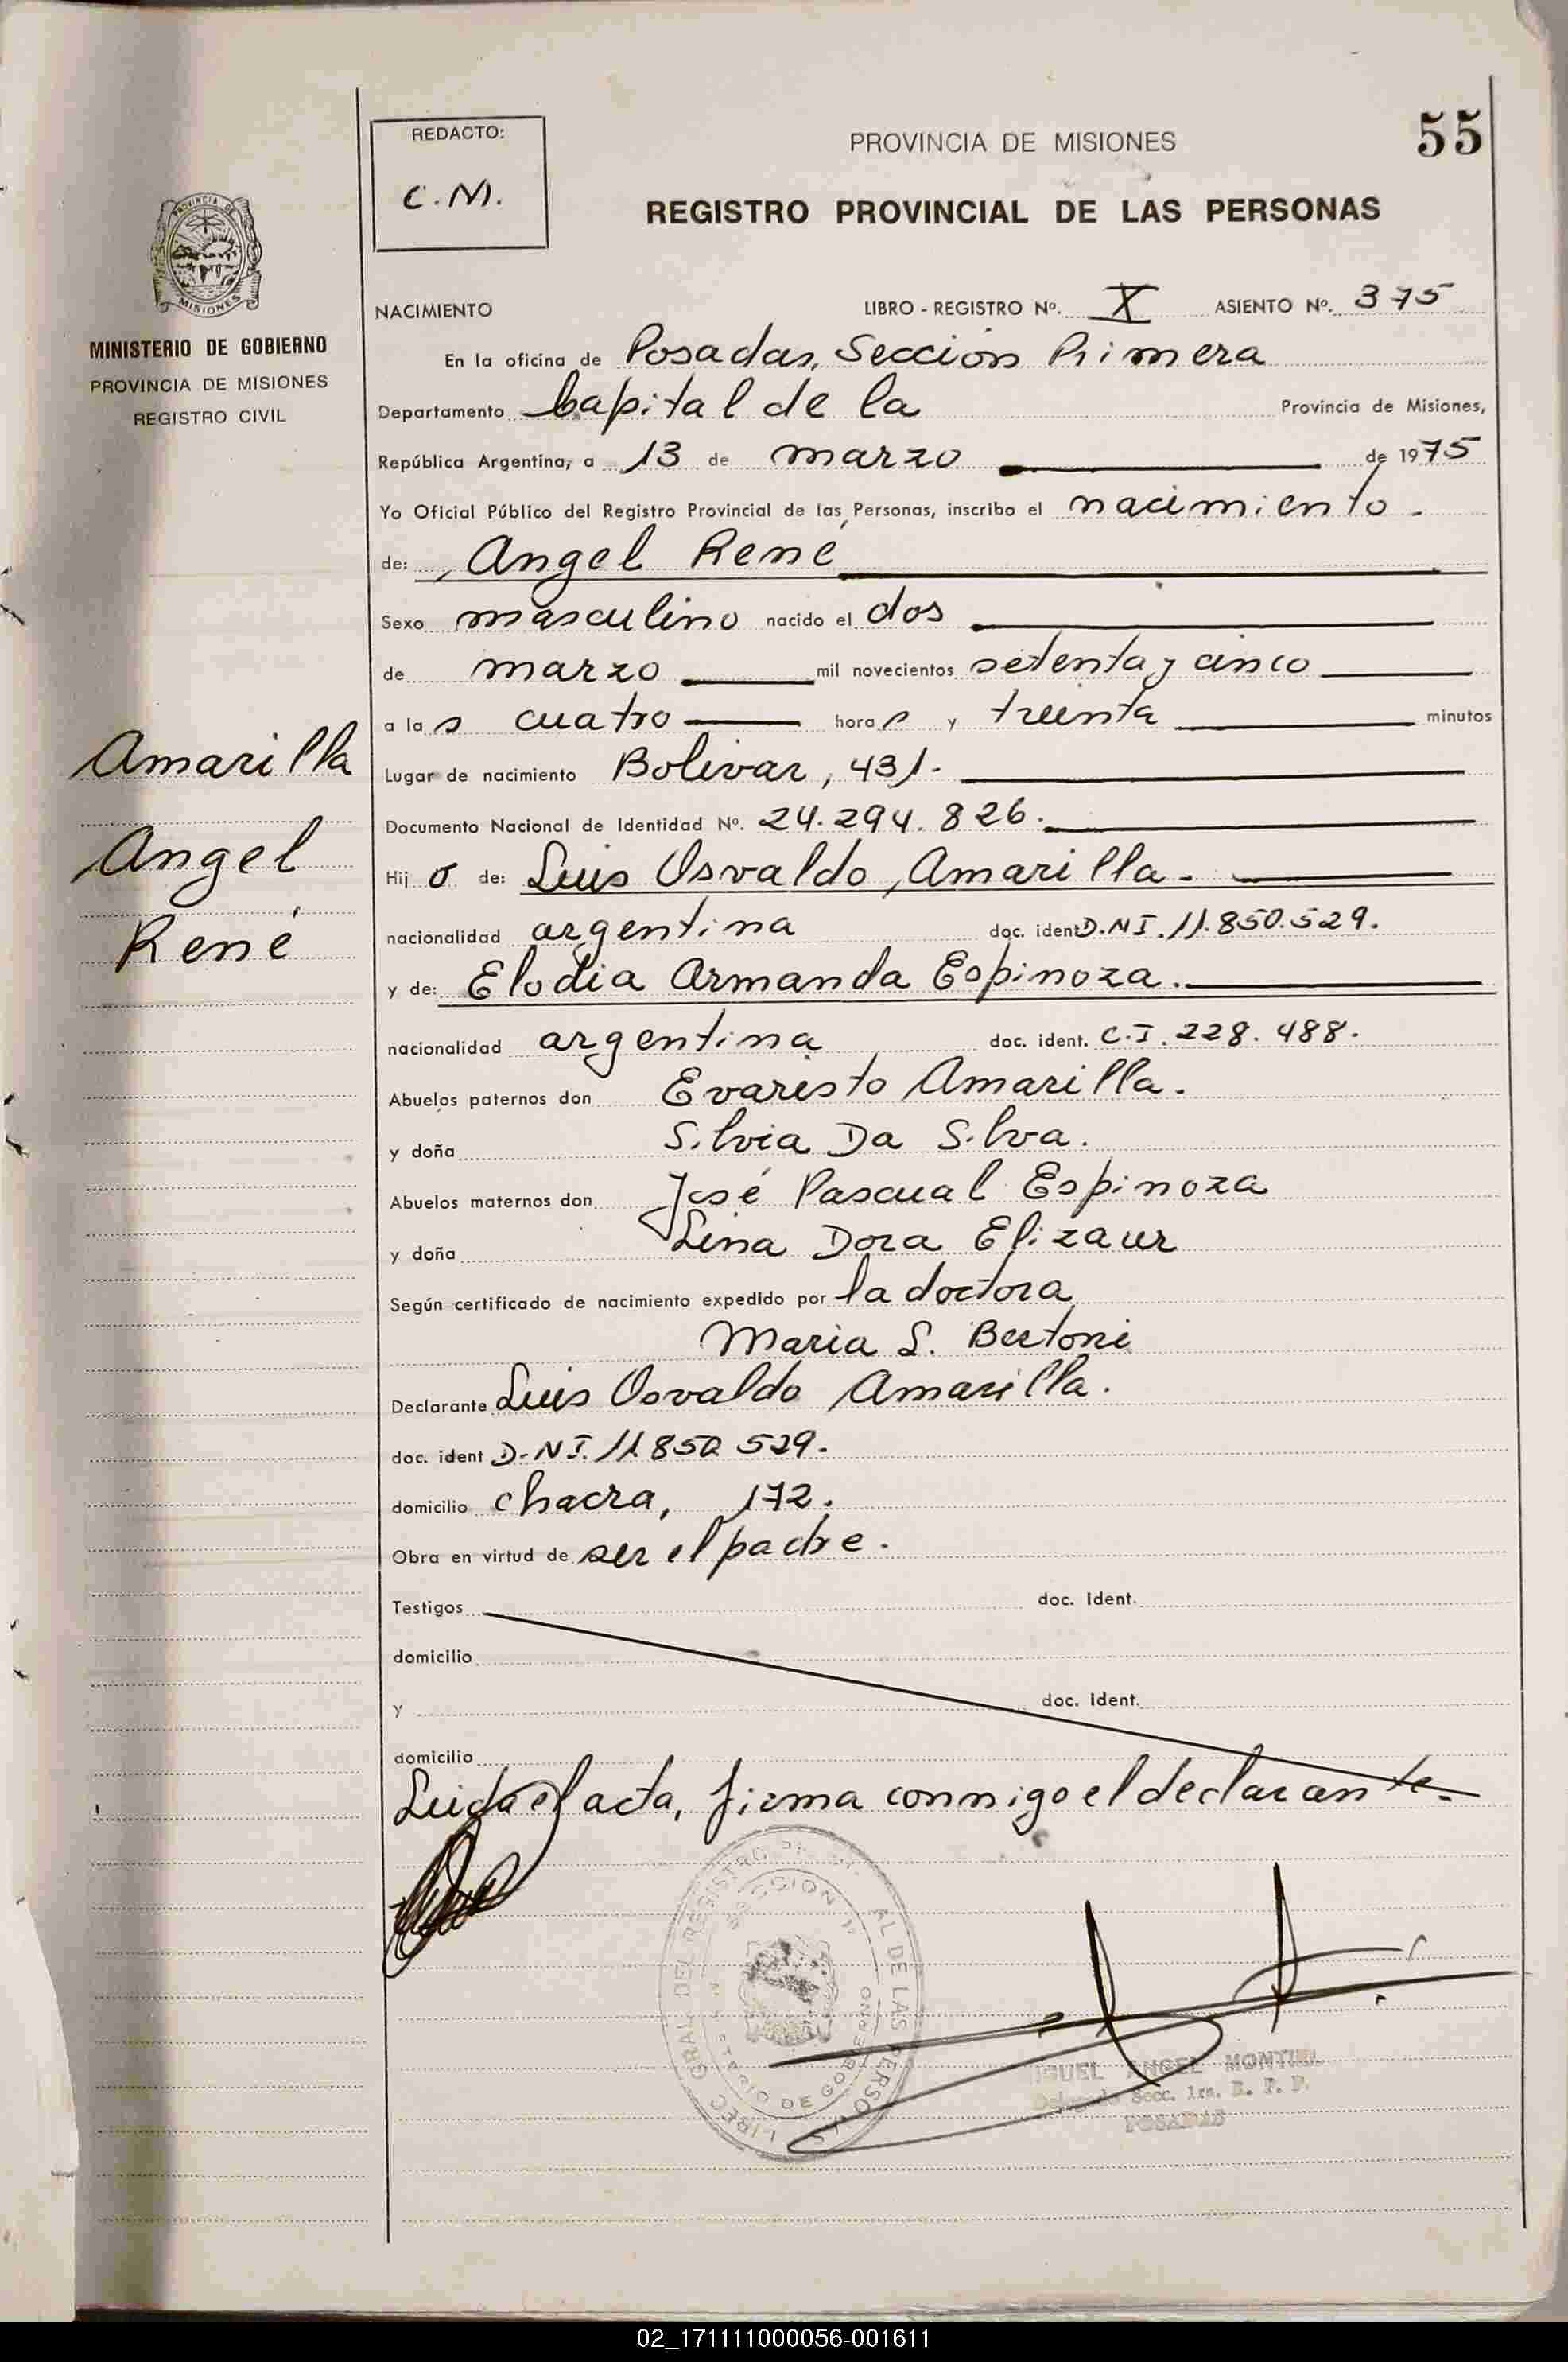 REDACTO:
C.M.
PROVINCIA DE MISIONES
55
REGISTRO PROVINCIAL DE LAS PERSONAS
PROVINCIA DE MISIONES
MINISTERIO DE GOBIERNO
PROVINCIA DE MISIONES
REGISTRO CIVIL
NACIMIENTO LIBRO - REGISTRO Nº. X ASIENTO Nº. 375
En la oficina de Posadas, Sección Primera
Departamento Capital de la Provincia de Misiones,
República Argentina, a 13 de marzo de 1975
Yo Oficial Público del Registro Provincial de las Personas, inscribo el nacimiento.
de: Angel René
Sexo masculino nacido el dos
de marzo mil novecientos setenta y cinco
a las cuatro horas y treinta minutos
Amarilla
Angel
René
Lugar de nacimiento Bolivar, 431.
Documento Nacional de Identidad Nº. 24.294.826.
Hijo de: Luis Osvaldo Amarilla.
nacionalidad argentina doc. ident D.N.I. 11.850.529.
y de: Elodia Armanda Espinoza.
nacionalidad argentina doc. ident. C.I. 228.488.
Abuelos paternos don Evaristo Amarilla.
y doña Silvia Da Silva.
Abuelos maternos don José Pascual Espinoza
y doña Lina Dora Elizaur
Según certificado de nacimiento expedido por la doctora
Maria S. Bertoni
Declarante Luis Osvaldo Amarilla.
doc. ident D.N.I. 11.850.529.
domicilio chacra, 172.
Obra en virtud de ser el padre.
Testigos doc. Ident.
domicilio
y doc. ident.
domicilio
Leida el acta, firma conmigo el declarante.
ANGEL MONTIEL
Secc. 1ra. R. P. P.
POSADAS
02_171111000056-001611